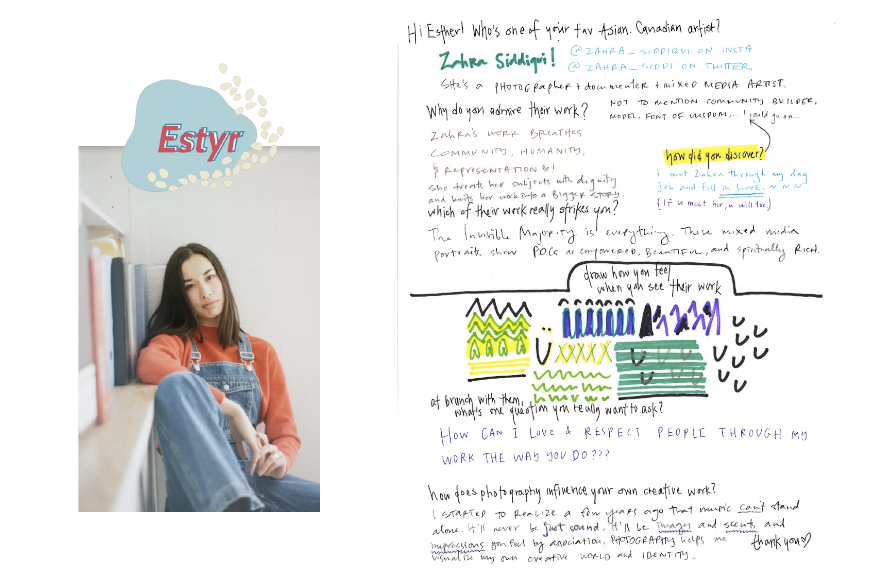 Estyr
Hi Esther! Who's one of your fav Asian Canadian artist?
Zahra Siddiqui!
@ZAHRA_SIDDIQUI ON INSTA
@ZAHRA_SIDDI ON TWITTER
She's a PHOTOGRApher + documenter + mixed MEDIA ARTIST.
NOT TO MENTION COMMUNITY BUILDER,
MODEL, FONT OF WISDOM,... I could go on...
Why do you admire their work?
ZAHRA'S WORK BREATHES
COMMUNITY, HUMANITY,
& REPRESENTATION!
She treats her subjects with dignity
and knits her work into a BIGGER STORY.
how did you discover?
I met Zahra through my day
job and fell in LOVE.
(If u meet her, u will too)
which of their work really strikes you?
The Invisible Majority is everything. These mixed media
portraits show POCs as empowered, BEAUTIFUL, and spiritually RICH.
draw how you feel
when you see their work
at brunch with them,
what's one question you really want to ask?
HOW CAN I LOVE & RESPECT PEOPLE THROUGH MY
WORK THE WAY YOU DO???
how does photography influence your own creative work?
I STARTED TO REALIZE A few years ago that music can't stand
alone. It'll never be just sound. It'll be images and scents and
impressions you feel by association. PHOTOGRAPHY helps me
visualize my own creative WORLD and IDENTITY.
thank you♡